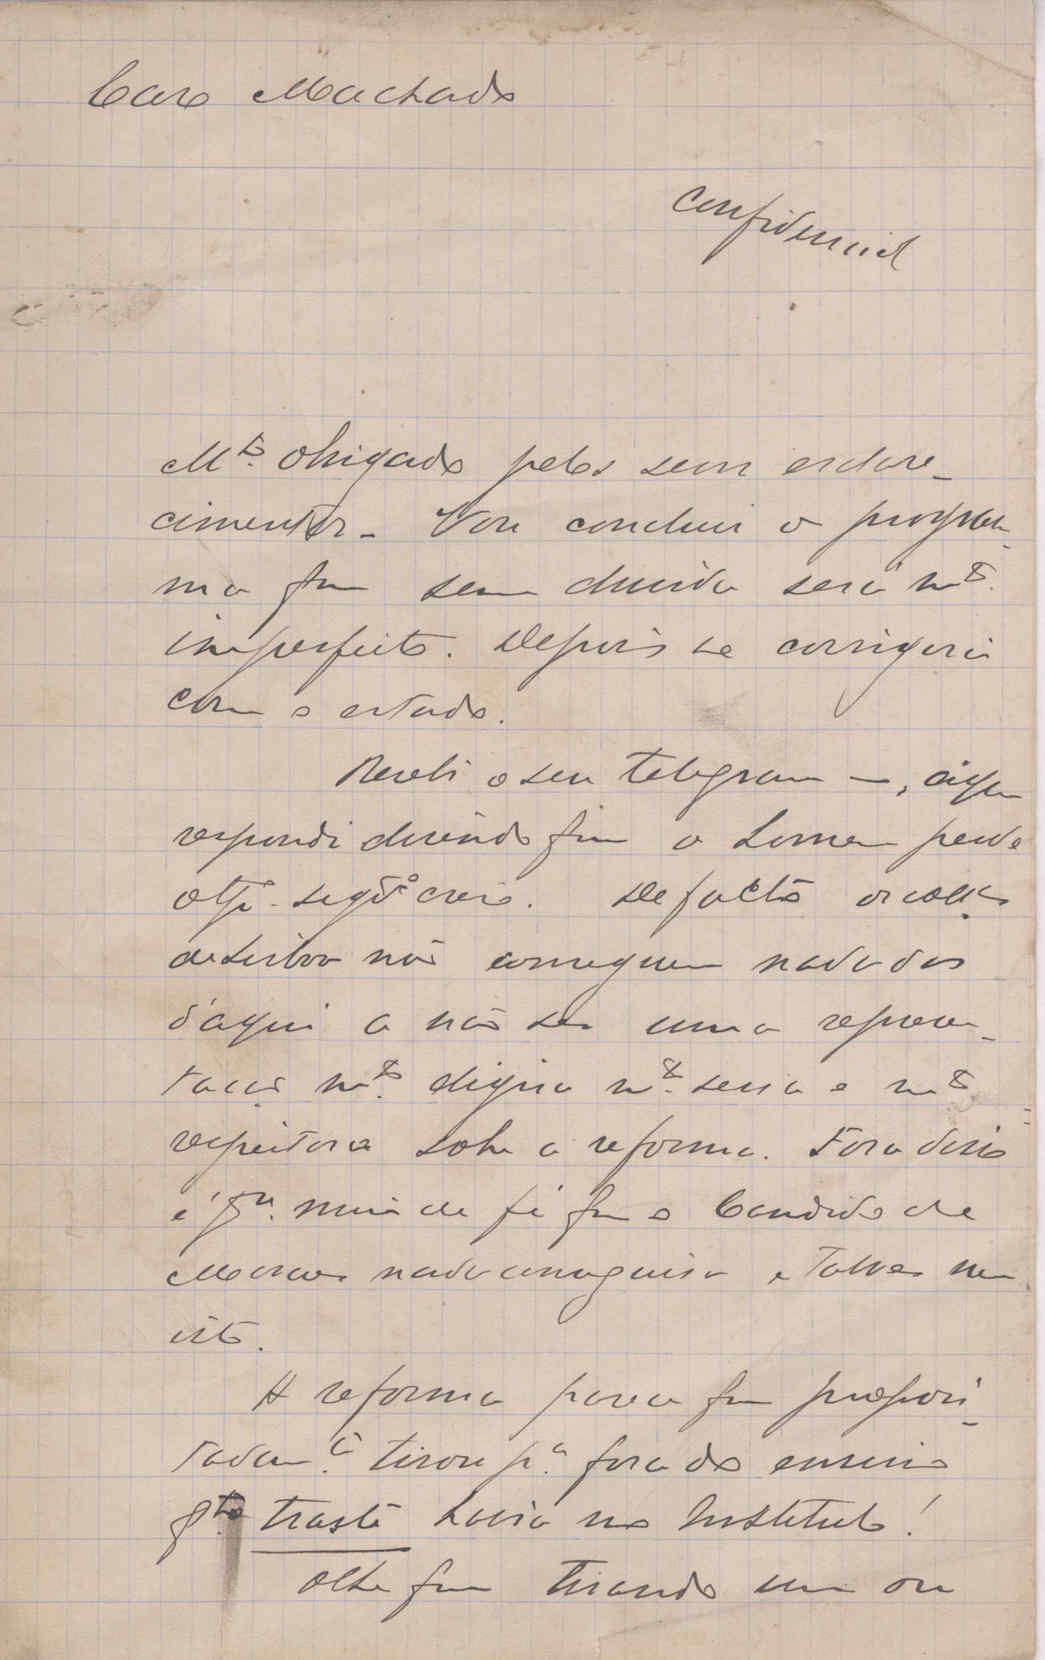 Caro Machado
Confidencial
M.to obrigado pelos seus esclare-
cimentos - Vou concluir o program-
ma que sem duvida será m.to
imperfeito. Depois se corrigirá
com o estudo.
Recebi o seu telegram—, aqu
respondi dizendo que o homem perde
segdo creio. De facto os coll.as
de Lisboa não conseguem nada dos
d'aqui a não ser uma represen-
tação m.to digna m.to seria e m.to
respeitosa sobre a reforma. Fora disso
é q.m minha fé que o Candido de
Moraes nada conseguisse e talvez nem
isto.
A reforma parece que proposi-
tadam.te tirou p.a fora do ensino
q.to traste havia no Instituto!
Olhe que tirando um ou